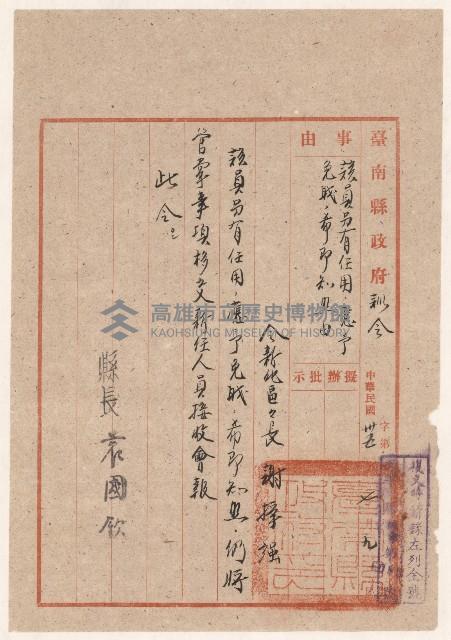 臺南縣政府訓令
事由
該員另有任用應予
免職希即知照由
擬辦批示
中華民國卅五
字第
七 九
令新化區區長 謝掙強
該員另有任用，應予免職，希即知照，仍將
管業事項移交新任人員接收會報
此令。
縣長袁國欽
復文時請錄左列全號
高雄市立歷史博物館
KAOHSIUNG MUSEUM OF HISTORY